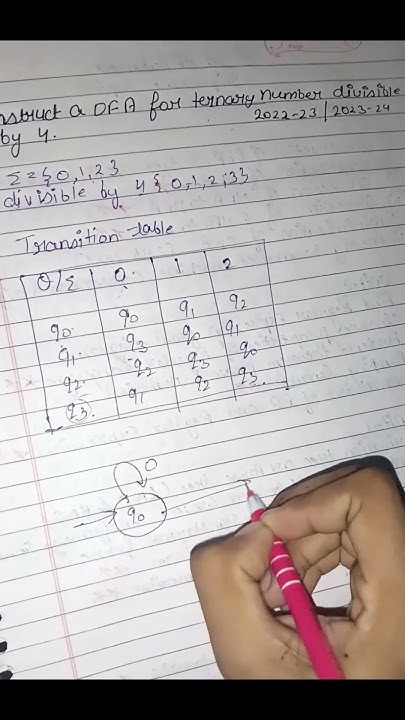 nstruct a DFA for ternary number divisible
by 4. 2022-23 | 2023-24
Σ = { 0, 1, 2 }
divisible by 4 { 0, 1, 2, 3 }
Transition table
Q/Σ 0 1 2
q0 q0 q1 q2
q1 q3 q0 q1
q2 q2 q3 q0
q3 q1 q2 q3
0
q0